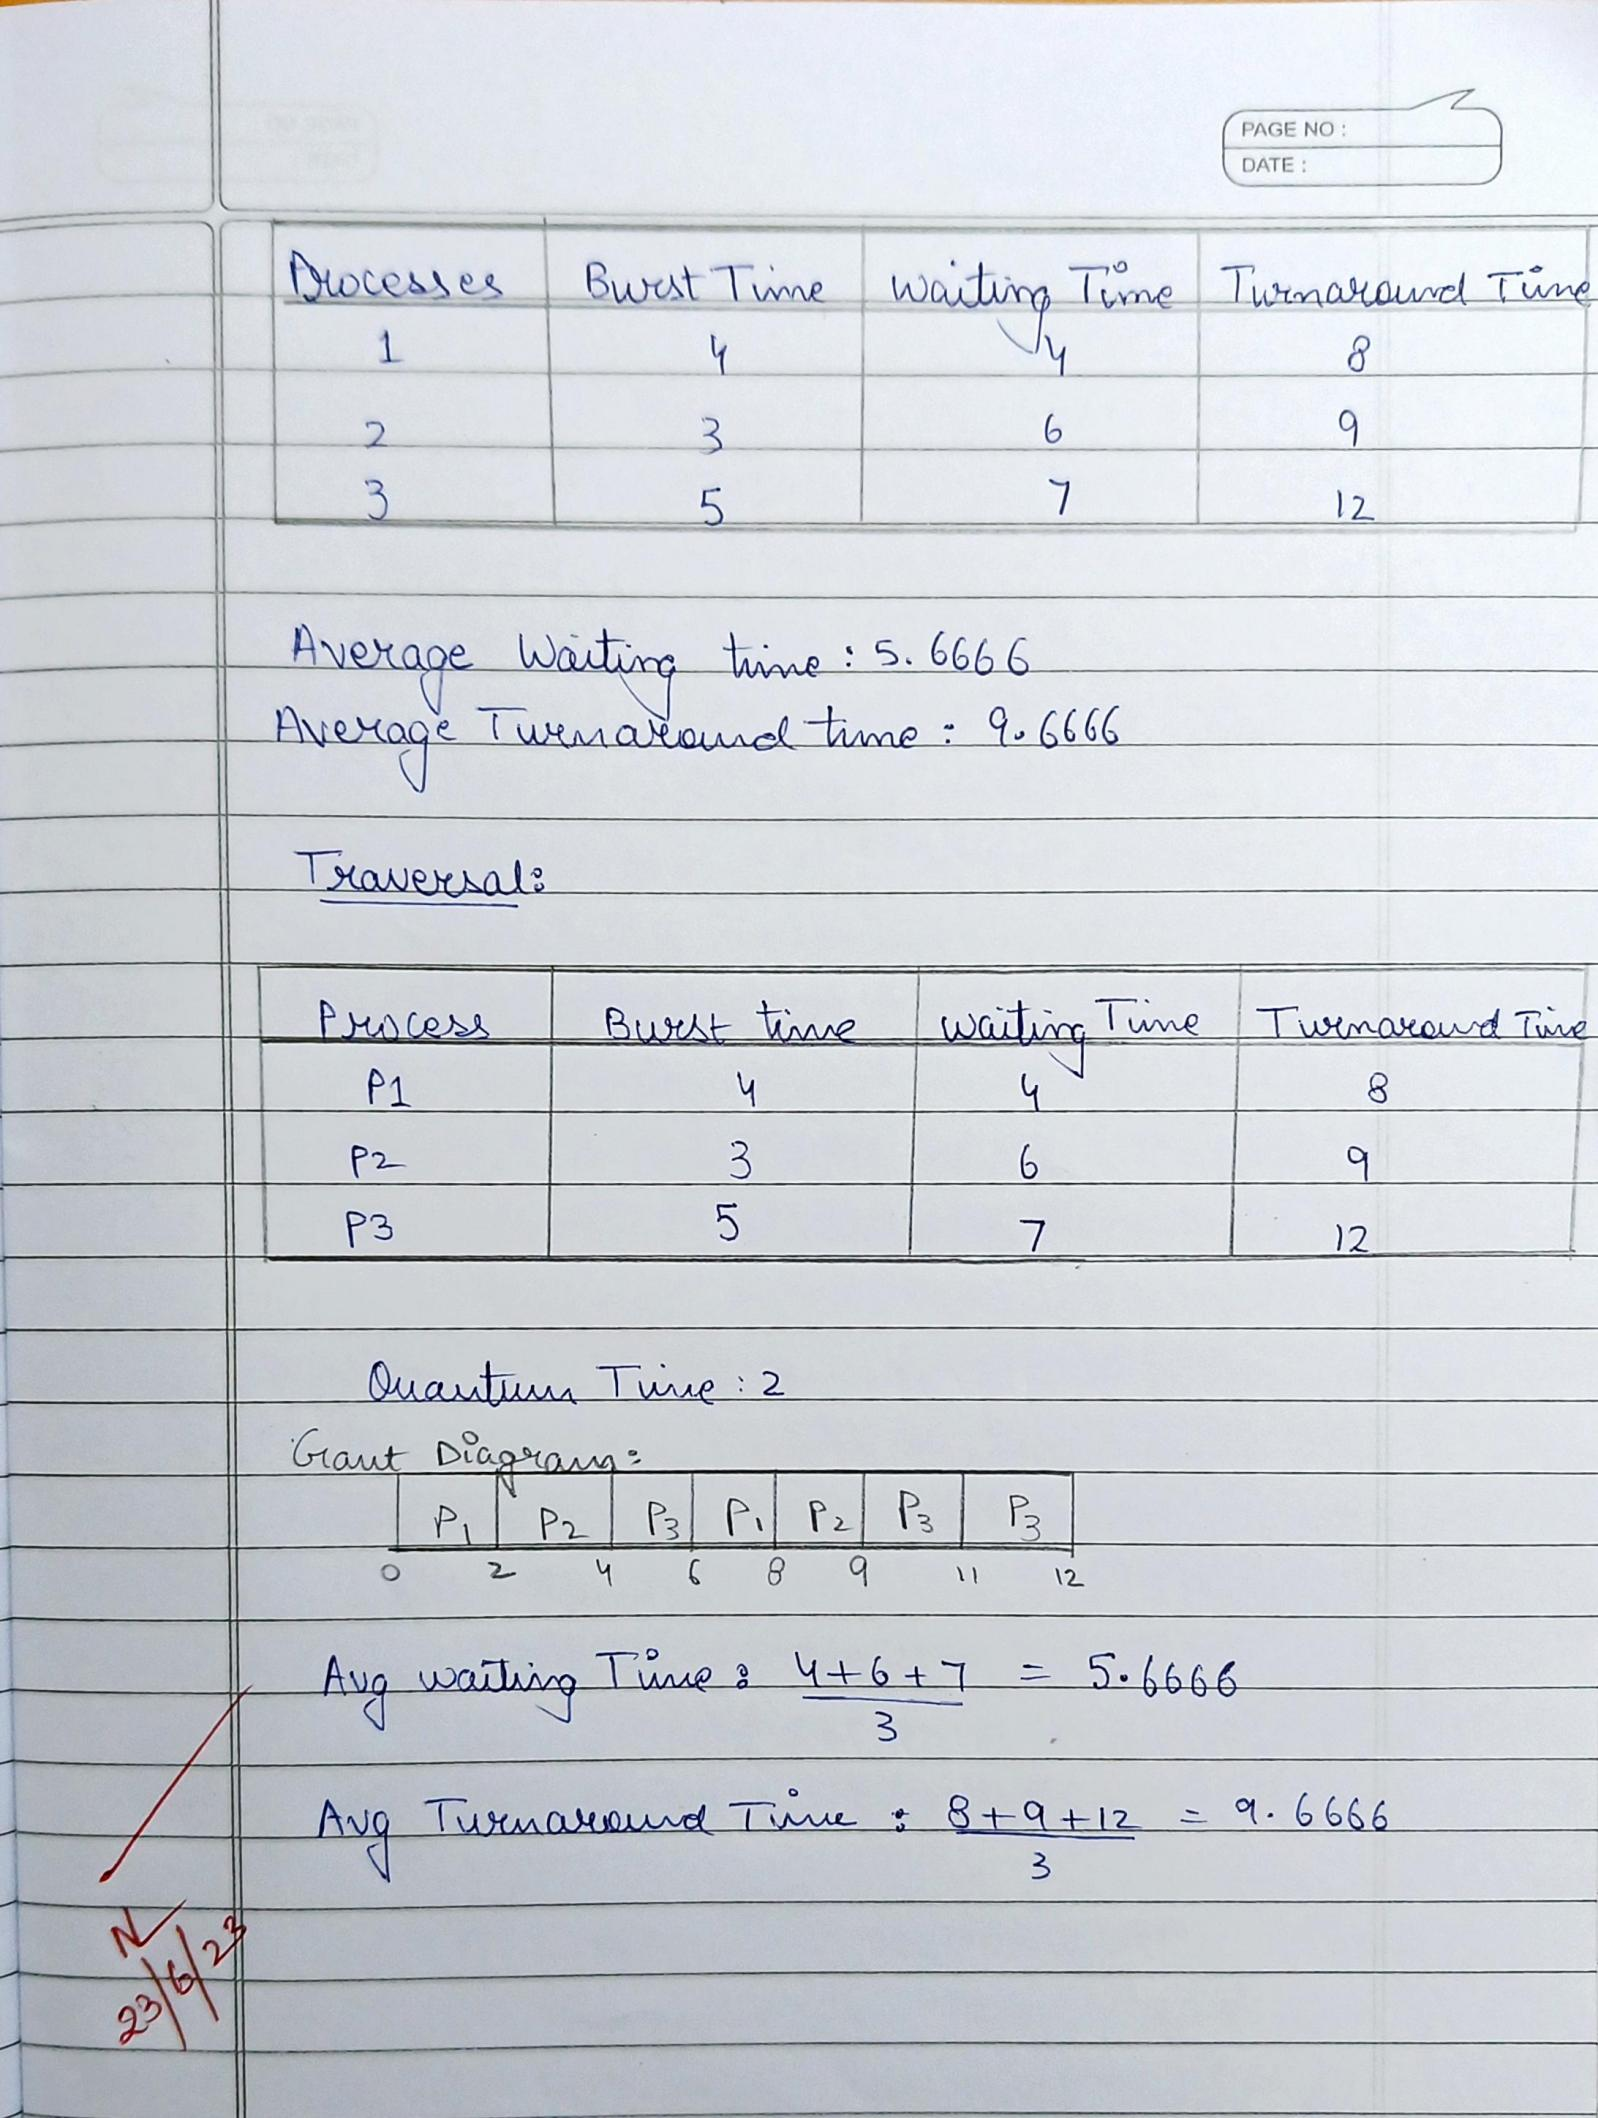 PAGE NO :
DATE :
Processes Burst Time Waiting Time Turnaround Time
1 4 4 8
2 3 6 9
3 5 7 12
Average Waiting time : 5.6666
Average Turnaround time : 9.6666
Traversal:
Process Burst time Waiting Time Turnaround Time
P1 4 4 8
P2 3 6 9
P3 5 7 12
Quantum Time : 2
Gant Diagram:
P1 P2 P3 P1 P2 P3 P3
0 2 4 6 8 9 11 12
Avg waiting Time : 4+6+7 = 5.6666
3
Avg Turnaround Time : 8+9+12 = 9.6666
3
23/6/23